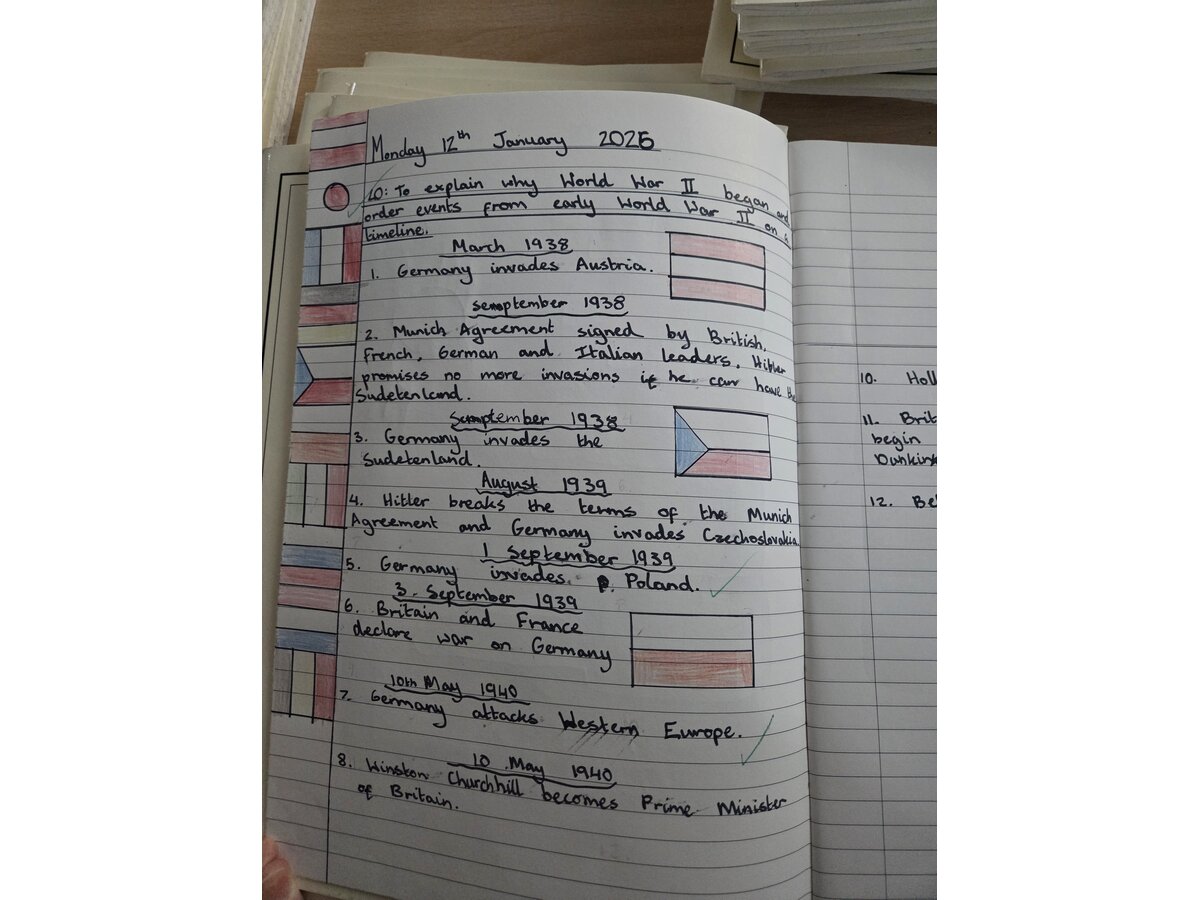 Monday 12th January 2026
LO: To explain why World War II began and
order events from early World War II on a
timeline.
March 1938
1. Germany invades Austria.
semptember 1938
2. Munich Agreement signed by British,
French, German and Italian leaders. Hitler
promises no more invasions if he can have the
Sudetenland.
Semptember 1938
3. Germany invades the
Sudetenland.
August 1939
4. Hitler breaks the terms of the Munich
Agreement and Germany invades Czechoslovakia.
1 September 1939
5. Germany invades. Poland.
3. September 1939
6. Britain and France
declare war on Germany
10th May 1940
7. Germany attacks Western Europe.
10 May 1940
8. Winston Churchhill becomes Prime Minister
of Britain.
10. Holl
11. Brit
begin
Dunkirk
12. Bel